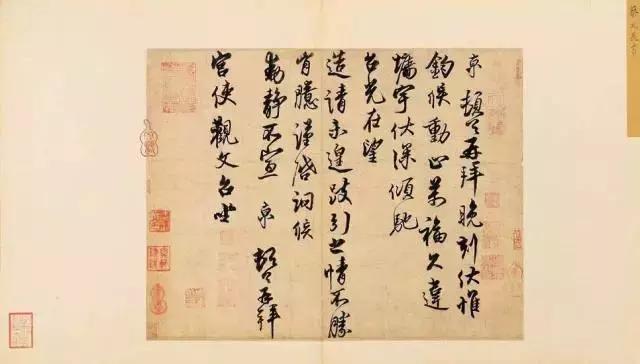 京 頓首再拜晚刻伏惟
鈞候動止萬福久違
墻宇伏深傾馳
台光在望
造請未遑跂引之情不勝
胷臆謹啓詞候
動靜不宣 京 頓首再拜
宮使觀文台坐